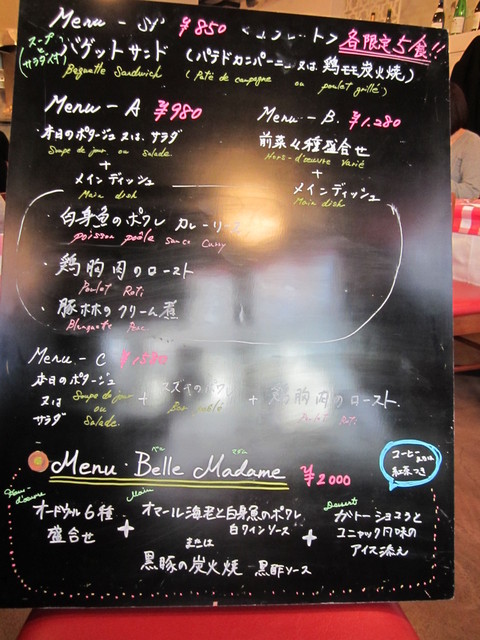 Menu - ¥850 各限定5食!!
スープ と サラダ付
バゲットサンド (パテドカンパーニュ 又は 鶏モモ炭火焼)
Baguette Sandwich (Pâté de campagne ou poulet grillé)
Menu - A ¥980
本日のポタージュ 又は サラダ
Soupe de jour ou Salade
+
メインディッシュ
Main dish
Menu - B. ¥1.280
前菜4種盛合せ
Hors-d'oeuvre Varié
+
メインディッシュ
Main dish
・白身魚のポワレ カレーソース
poisson poêle sauce Curry
・鶏胸肉のロースト
Poulet Roti
・豚ホホのクリーム煮
Menu - C
本日のポタージュ
又は
サラダ
Soupe de jour
ou
Salade.
+ スズキのポワレ + 鶏胸肉のロースト
Poulet Roti
Menu Belle Madame ¥2000
コーヒー
又は
紅茶つき
オードヴル6種
盛合せ
+
Main
オマール海老と白身魚のポワレ
白ワインソース
または
黒豚の炭火焼 黒酢ソース
+
Dessert
ガトーショコラと
コニャック風味の
アイス添え